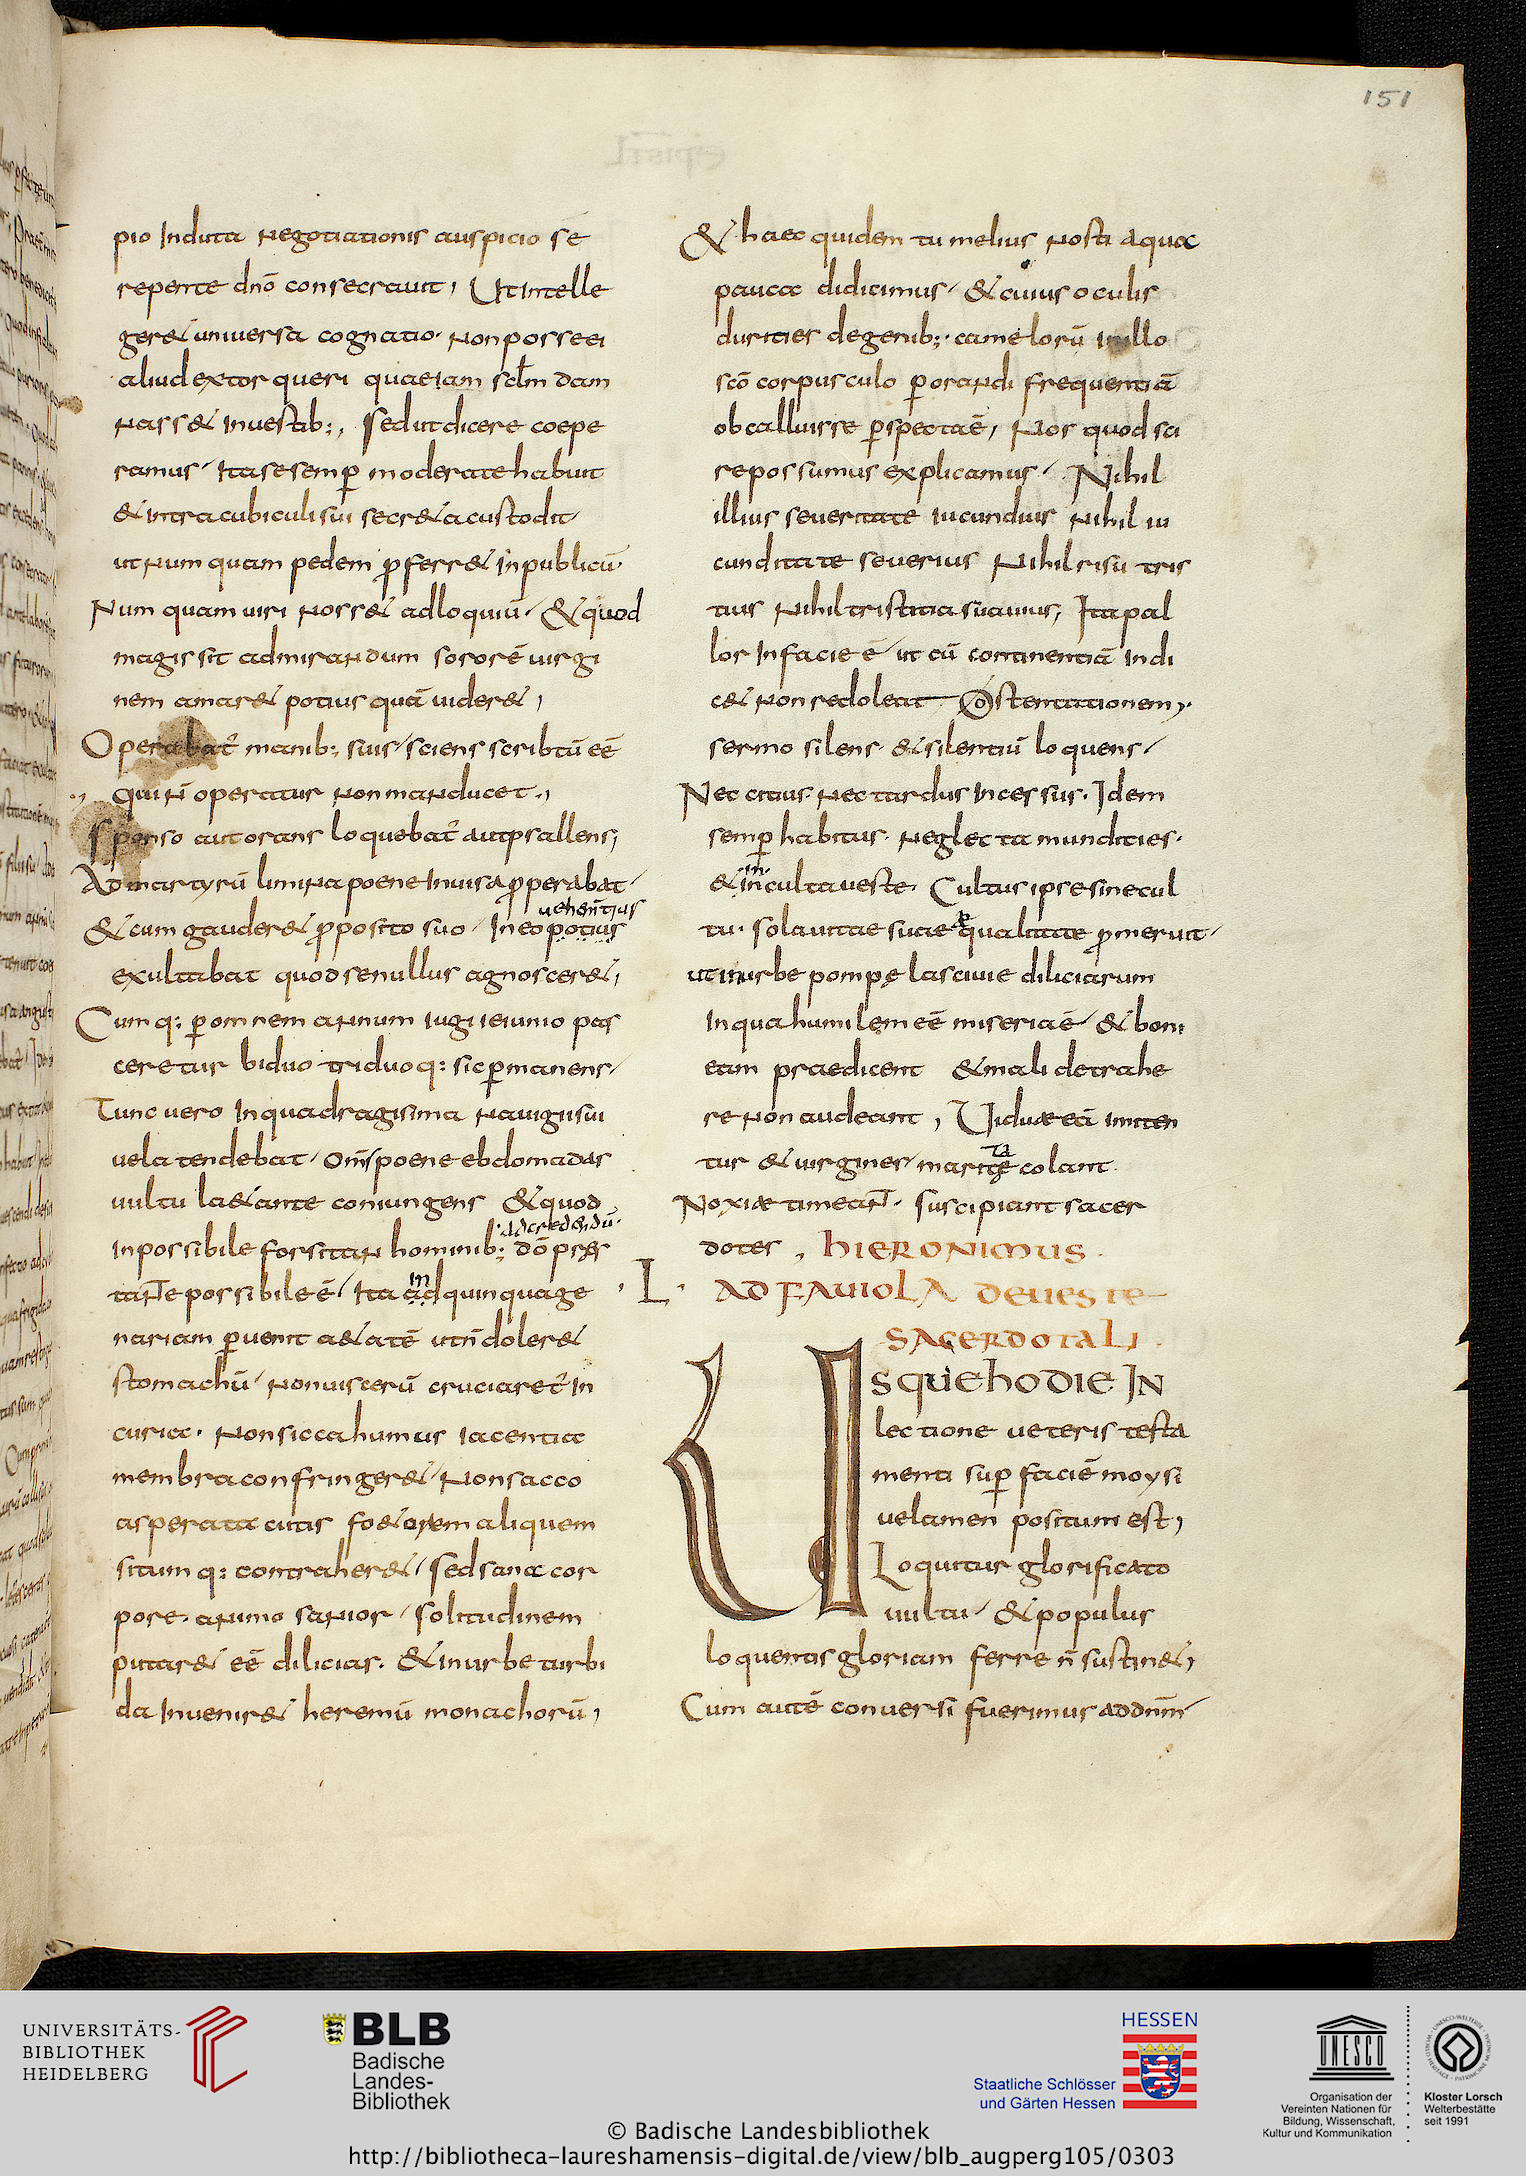 151
pio Induta negotiationis auspicio sē
repente dnō consecrauit, Ut intelle
ger& uniuersa cognatio. non posse ei
aliud extor queri quae iam sclm dam
nass& In uestib:, sed ut dicere coepe
ramus, Ita se semp moderate habuit
& intra cubiculi sui secr&a custodit
ut num quam pedem pferr& in publicū.
Num quam uiri noss& adloquiū, & quod
magis sit admirandum sororē uirgi
nem amar& potius quā uider&,
Operabat manib: suis, sciens scribtū eē
qui ñ operatur non manducet.,
sponso aut orans loquebat aut psallens;
Ad martyrū limina poene Inuisa properabat,
uehentius
& cum gauder& pposito suo. In eo potius
exultabat quod se nullus agnoscer&,
Cumq: p omnem annum iugi ieiunio pas
ceretur biduo triduoq: sic pmanens,
Tunc uero In quadragisima nauigii sui
uela tendebat, oms poene ebdomadas
uultu la&ante coniungens & quod
ad credendū.
Inpossibile forsitan hominib: dō praes
in
tante possibile ē, Ita ad quinquage
nariam puenit a&atē ut ñ doler&
stomachū, non uiscerū cruciaret In
curia. Non sicca humus iacentia
membra confringer&, Non sacco
asperata cutis fo&orem aliquem
situmq: contraher&, sed sana cor
pore. animo sanior, solitudinem
putar& eē dilicias. & in urbe turbi
da Inuenir& heremū monachorū,
& haec quidem tu melius nosti a qua
pauca didicimus, & cuius oculis
durities degenib:. camelorū in illo
scō corpusculo p orandi frequentiā
obcalluisse pspecta ē, Nos quod sci
re possumus explicamus, Nihil
illius seueritate iucundius nihil iu
cunditate seuerius Nihil risu tris
tius Nihil tristitia suauius, Ita pal
lor In facie ē, ut cū continentiā indi
c& non redoleat Ostentationem,
sermo silens & silentiū loquens,
Nec citus Nec tardus Incessus. Idem
semp habitus. neglecta mundities.
in
& in culta ueste. Cultus ipse sine cul
tu. sola uitae suae qualitate pmeruit,
ut in urbe pompę lasciuie diliciarum
In qua humilem eē miseria ē, & boni
eam praedicent & mali detrahe
re non audeant, Uiduae eā imiten
ta
tur & uirgines, maritę colant
Noxiae timeant. suscipiant sacer
dotes, HIERONIMUS.
.L. AD FAUIOLA DE UESTE
SACERDOTALI.
USQUE HODIE IN
lectione ueteris testa
menti sup faciē moysi
uelamen positum est,
Loquitur glorificato
uultu, & populus
loquentis gloriam ferre ñ sustin&,
Cum autē conuersi fuerimus ad dnm,
UNIVERSITÄTS-
BIBLIOTHEK
HEIDELBERG
BLB
Badische
Landes-
Bibliothek
HESSEN
Staatliche Schlösser
und Gärten Hessen
UNESCO
Organisation der
Vereinten Nationen für
Bildung, Wissenschaft,
Kultur und Kommunikation
Kloster Lorsch
Welterbestätte
seit 1991
© Badische Landesbibliothek
http://bibliotheca-laureshamensis-digital.de/view/blb_augperg105/0303